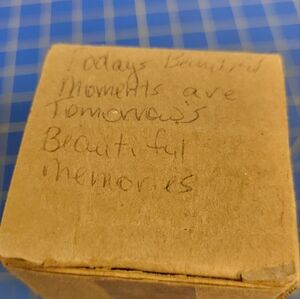 Todays Beautiful
Moments are
Tomorrow's
Beautiful
memories